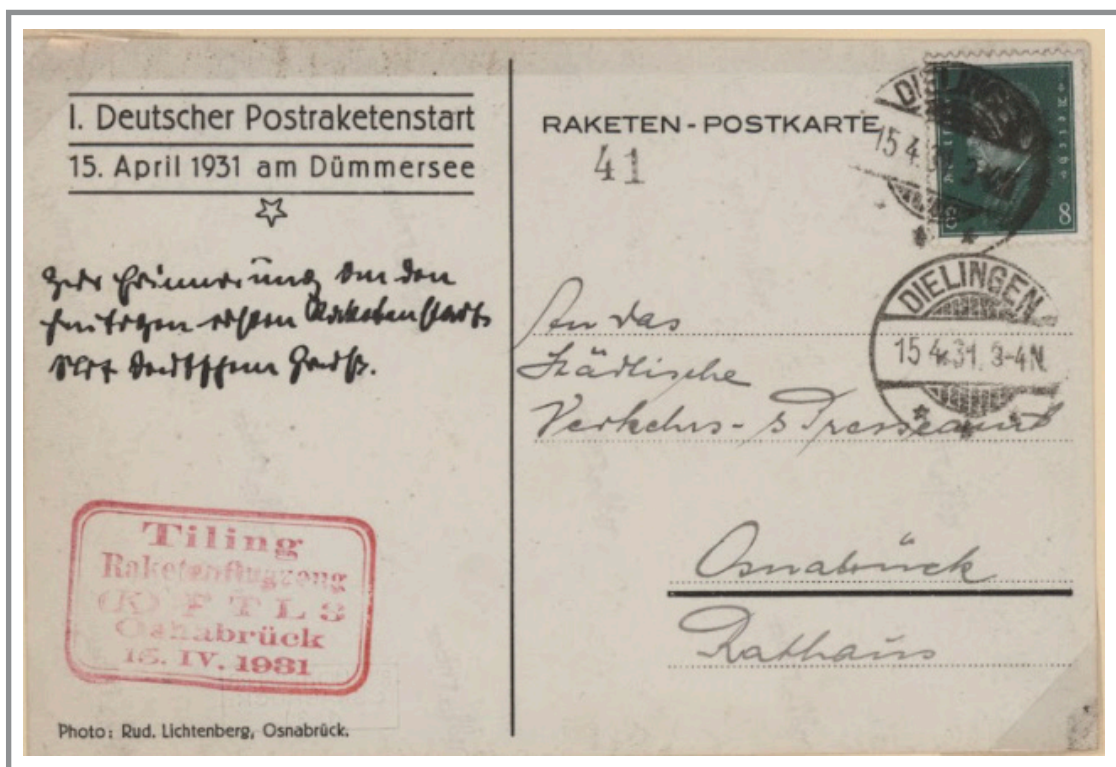 I. Deutscher Postraketenstart
15. April 1931 am Dümmersee
Zur Erinnerung an den
heutigen ersten Raketenstart
Mit Deutschem Gruß.
Tiling
Raketenflugzeug
(K) F T L 3
Osnabrück
15. IV. 1931
Photo: Rud. Lichtenberg, Osnabrück.
RAKETEN-POSTKARTE
41
DIELINGEN
15 4.31. 3-4N
8
DIELINGEN
15 4.31. 3-4N.
An das
Städtische
Verkehrs- & Presseamt
Osnabrück
Rathaus